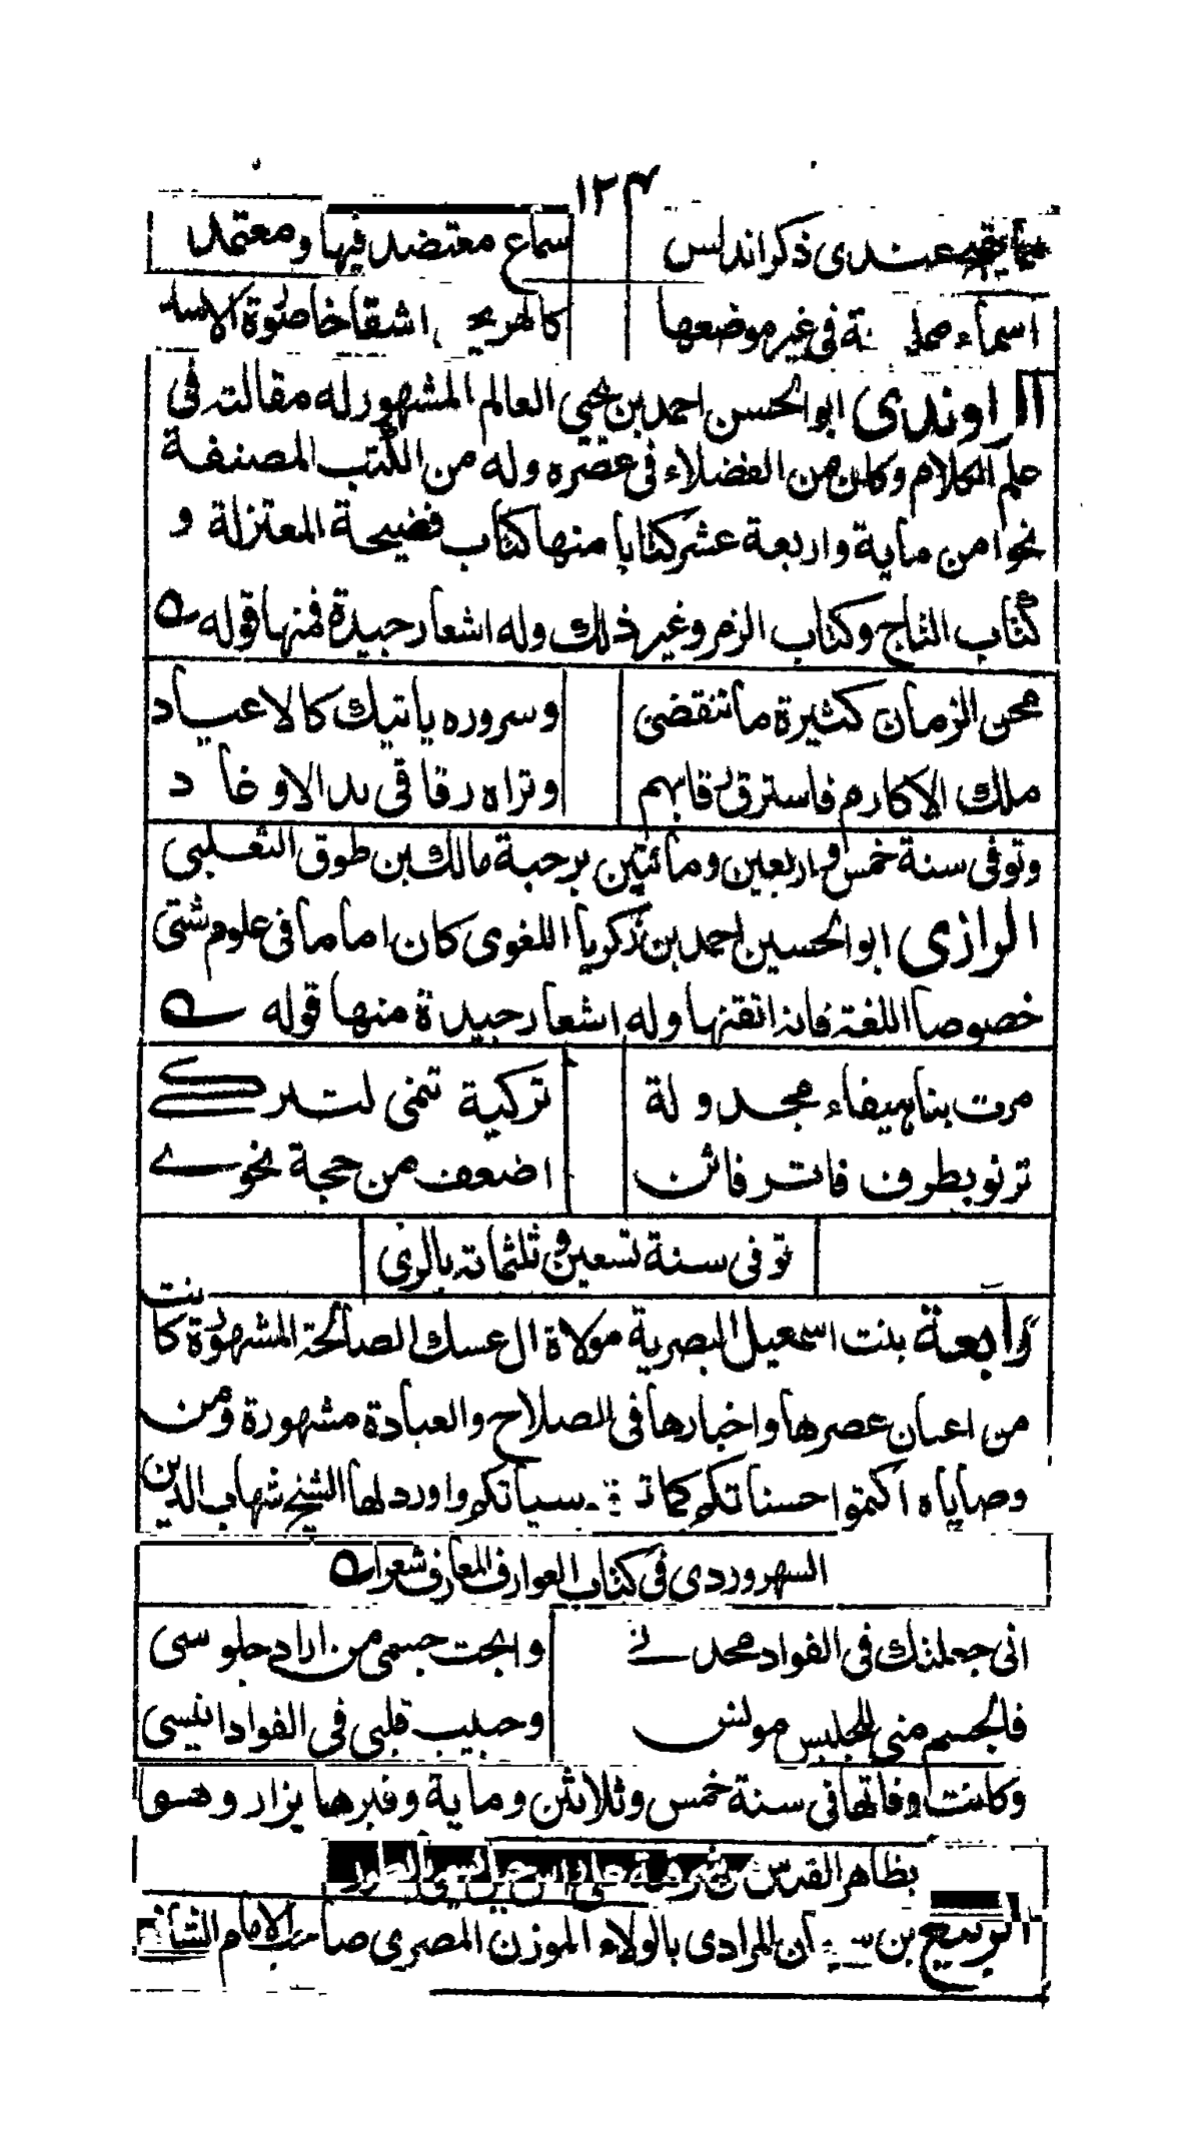 ١٢٣
عندى ذكر اندلس سماع معتضد فيها ومعتمد
اسماء فى غير موضعها كالهر اشقاخا صوة الاسد
الراوندى ابوالحسن احمد بن يحيى العالم المشهور له مقالته فى
علم الكلام وكان من الفضلاء فى عصره وله من الكتب المصنفة
نحوا من ماية واربعة عشر كتابا منها كتاب فضيحة المعتزلة و
كتاب التاج وكتاب الزمر وغير ذلك وله اشعار جيدة فمنها قوله
محن الزمان كثيرة ما تنقضى وسروره ياتيك كالاعياد
ملك الاكارم فاسترق رقابهم وتراه رقا فى يد الاوغاد
وتوفى سنة خمس واربعين ومائتين برحبة مالك بن طوق التغلبى
الرازى ابوالحسين احمد بن زكريا اللغوى كان اماما فى علوم شتى
خصوصا اللغة فانه اتقنها وله اشعار جيدة منها قوله
مرت بنا هيفاء مجدولة تركية تنمى لتركى
ترنو بطرف فاتر فاتن اضعف من حجة نحوى
توفى سنة تسعين وثلثمائة بالرى
رابعة بنت اسمعيل البصرية مولاة ال عسك الصالحة المشهورة كانت
من اعيان عصرها واخبارها فى الصلاح والعبادة مشهورة ومن
وصاياه اكتموا حسناتكم كما سياتكم واورد لها الشيخ شهاب الدين
السهروردى فى كتاب العوارف المعارف شعرا
انى جعلتك فى الفواد محدثى وابحت جسمى من اراد جلوسى
فالجسم منى للجليس مونس وحبيب قلبى فى الفواد انيسى
وكانت وفاتها فى سنة خمس وثلاثين وماية وقبرها يزار وهو
بظاهر القدس من شرقية على راس جبل يسمى بالطور
الربيع بن المرادى بالولاء الموزن المصرى صاحب الامام الشافعى